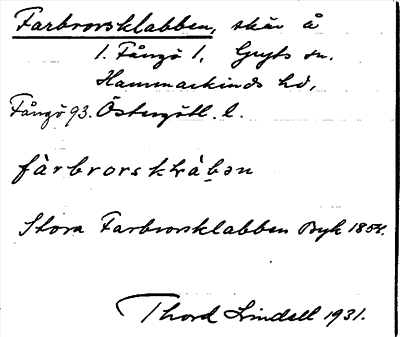 Farbrorsklabben, skär å
1. Fångö 1, Gryts sn.
Hammarkinds hd,
Fångö 93. Östergötl. l.
fàrbrorsklàbən
Stora Farbrorsklabben Byk 1854.
Thord Lindell 1931.